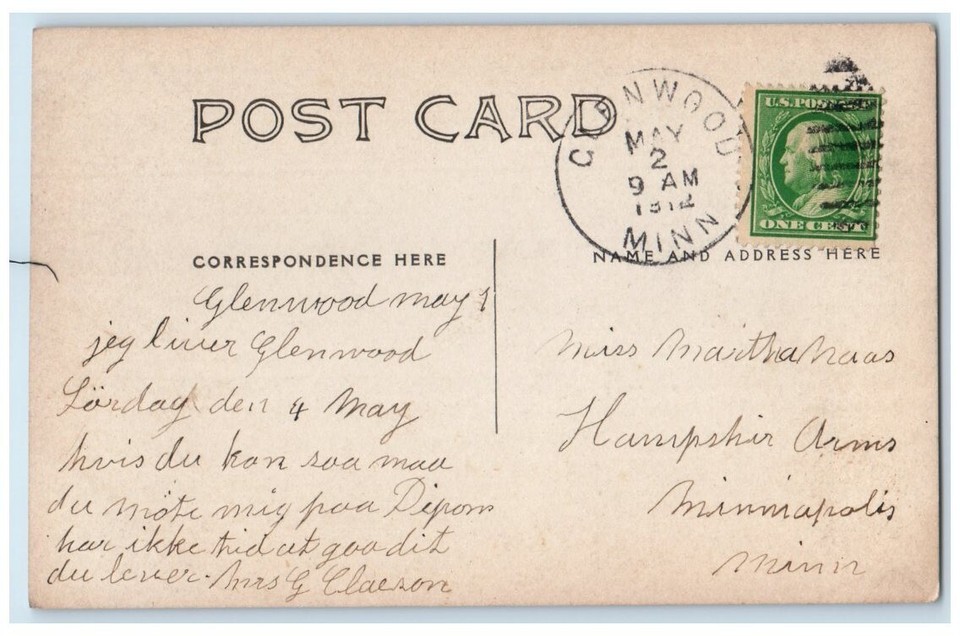 POST CARD
GLENWOOD
MAY
2
9 AM
1912
MINN
U.S. POSTAGE
ONE CENT
CORRESPONDENCE HERE
NAME AND ADDRESS HERE
Glenwood may 1
jeg liver Glenwood
Lördag den 4 May
hvis du kan saa maa
du möte mig paa Dipom
har ikke tid at gaa dit
du lever. Mrs G Claeson
Miss Martha Naas
Hampshir Arms
Minniapolis
Minn